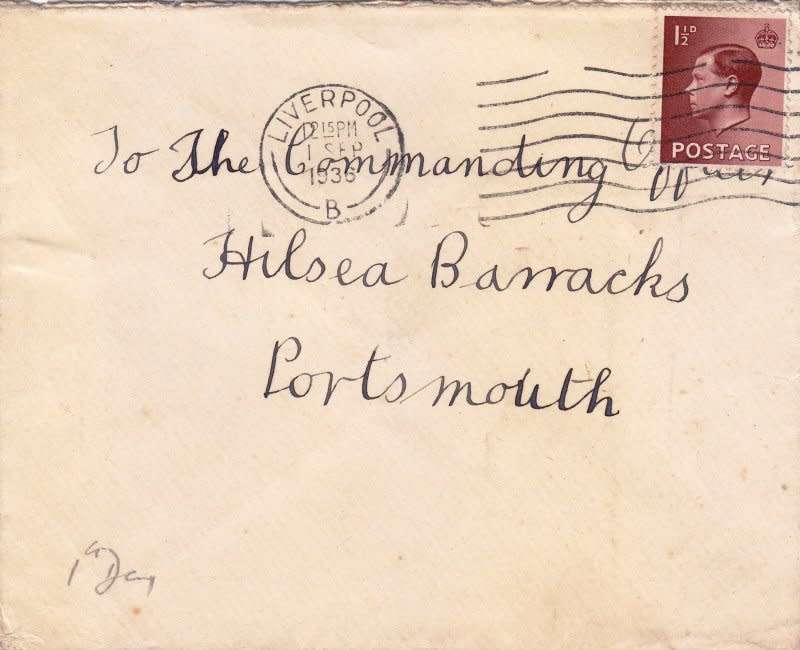 1½D
POSTAGE
LIVERPOOL
12 15 PM
1 SEP
1936
B
To The Commanding
Hilsea Barracks
Portsmouth
1st Day